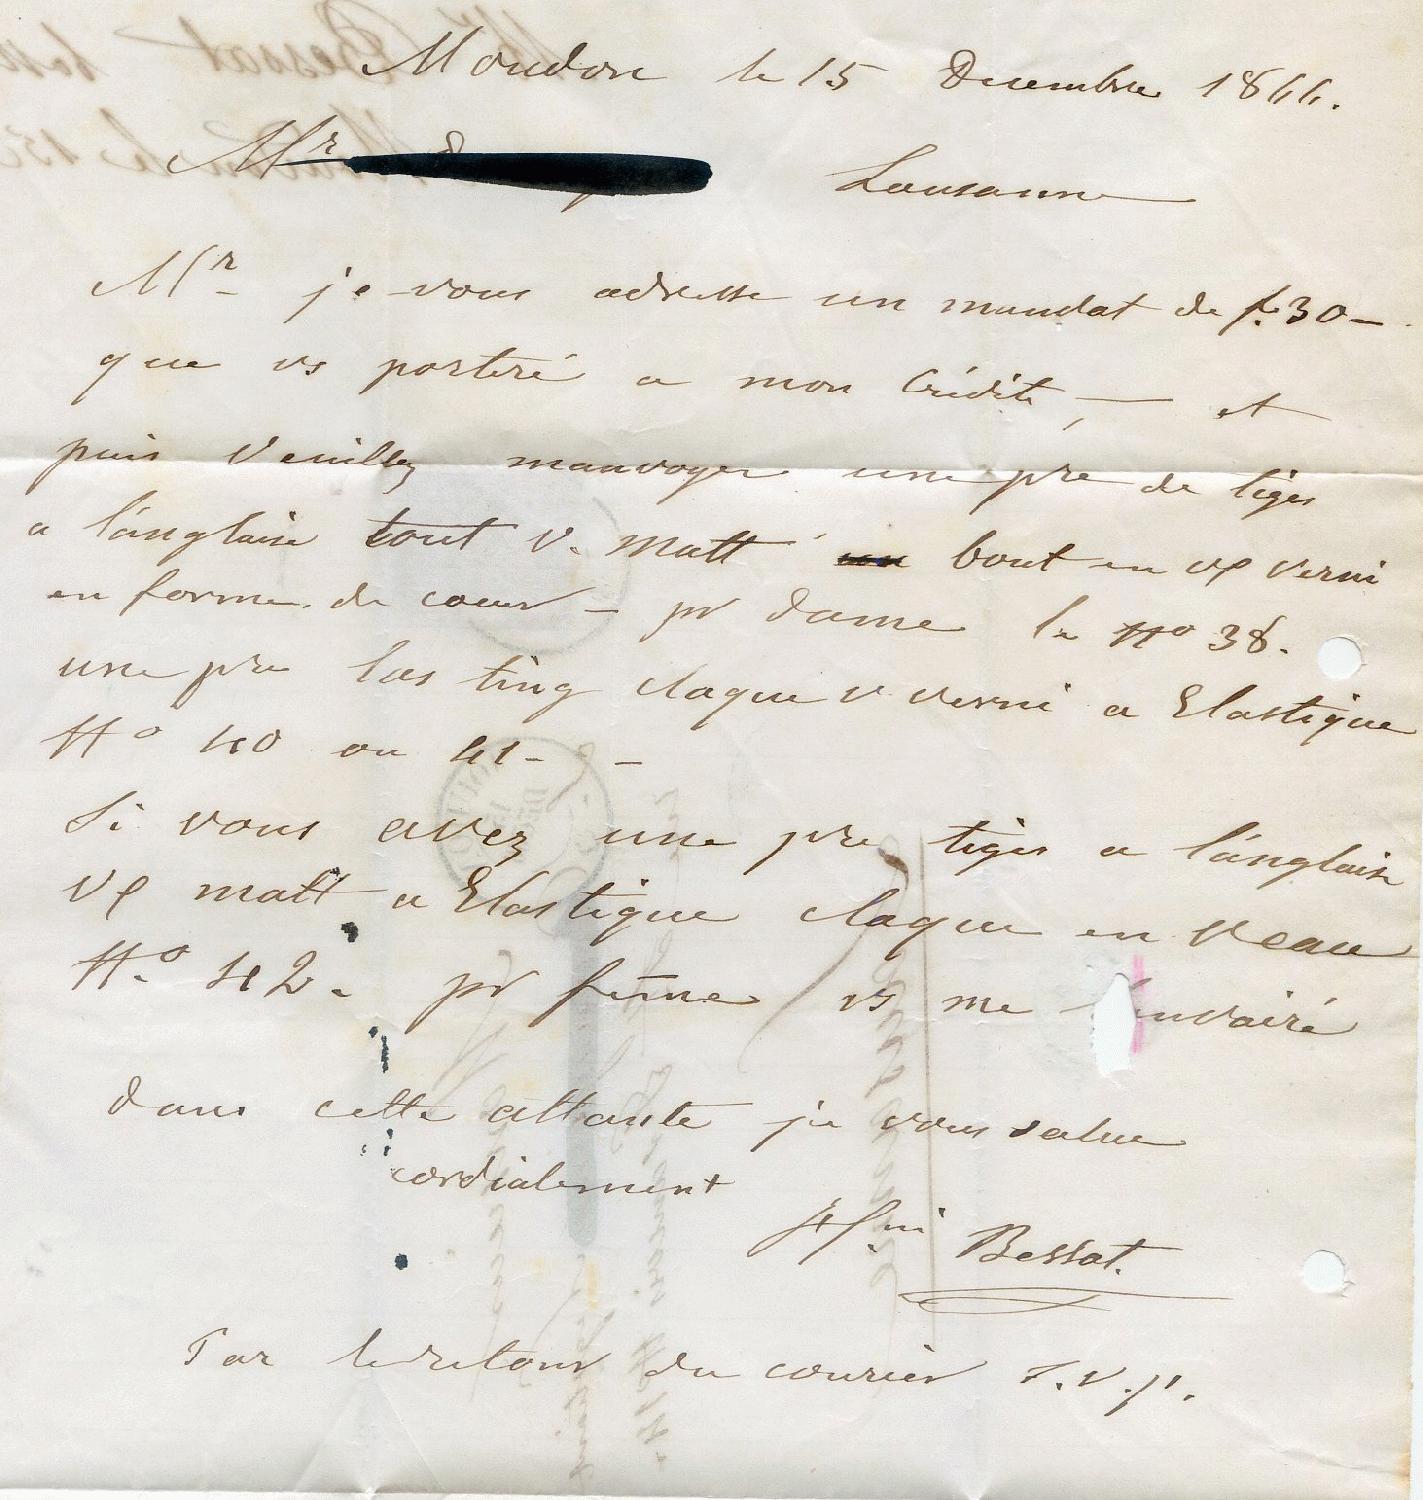 Moudon le 15 Decembre 1866.
Mr Lausanne
Mr je vous adresse un mandat de fr. 30 —
que vs porteré a mon Crédite, — et
puis veuillez manvoyer une pre de tiges
a l'anglaise tout v. matt bout en v verni
en forme de coeur — pr dame le No 38.
une pre lasting claque v verni a Elastique
No 40 ou 41 - -
Si vous avez une pre tiges a l'anglaise
v matt a Elastique claque en veau
No. 42. pr feme vs me l'envairé
dans cette attante je vous salue
cordialement
Bessat.
Par le retour du courier S.V.P.